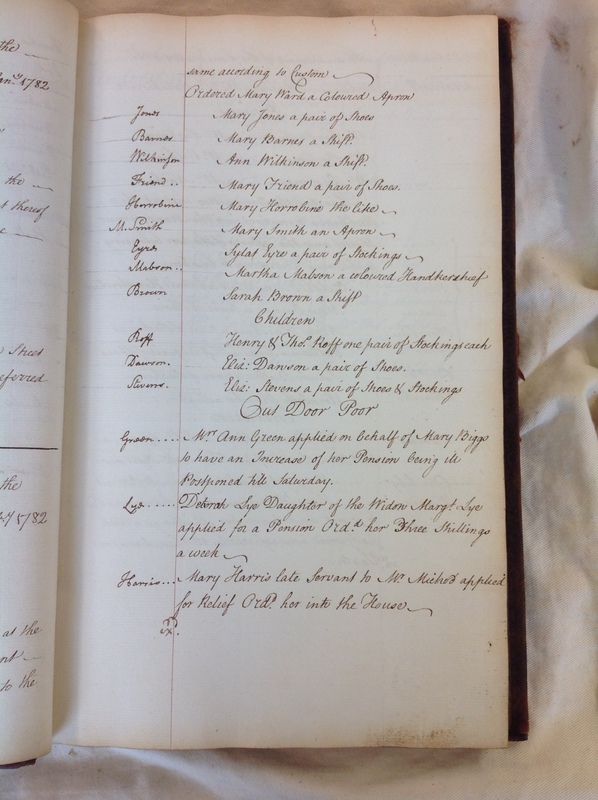 the
Jan.y 1782
the
t thereof
Street
eferred
the
1782
at the
nt
to the
same according to Custom
Ordered Mary Ward a Coloured Apron
Jones Mary Jones a pair of Shoes
Barnes Mary Barnes a Shift.
Wilkinson Ann Wilkinson a Shift.
Friend .. Mary Friend a pair of Shoes.
Horrobine Mary Horrobine the like
M. Smith Mary Smith an Apron
Eyre Sylas Eyre a pair of Stockings
Mabson .. Martha Mabson a coloured Handkerchief
Brown Sarah Brown a Shift
Children
Roff Henry & Tho.s Roff one pair of Stockings each
Dawson. Eliz: Dawson a pair of Shoes.
Stevens. Eliz: Stevens a pair of Shoes & Stockings
Out Door Poor
Green .... Mrs Ann Green applied on behalf of Mary Biggs
to have an Increase of her Pension being ill
Postponed till Saturday.
Lye ..... Deborah Lye Daughter of the Widow Margt. Lye
applied for a Pension Ord.d her Three Shillings
a week
Harris ... Mary Harris late Servant to Mr. applied
for Relief Ord.d her into the House